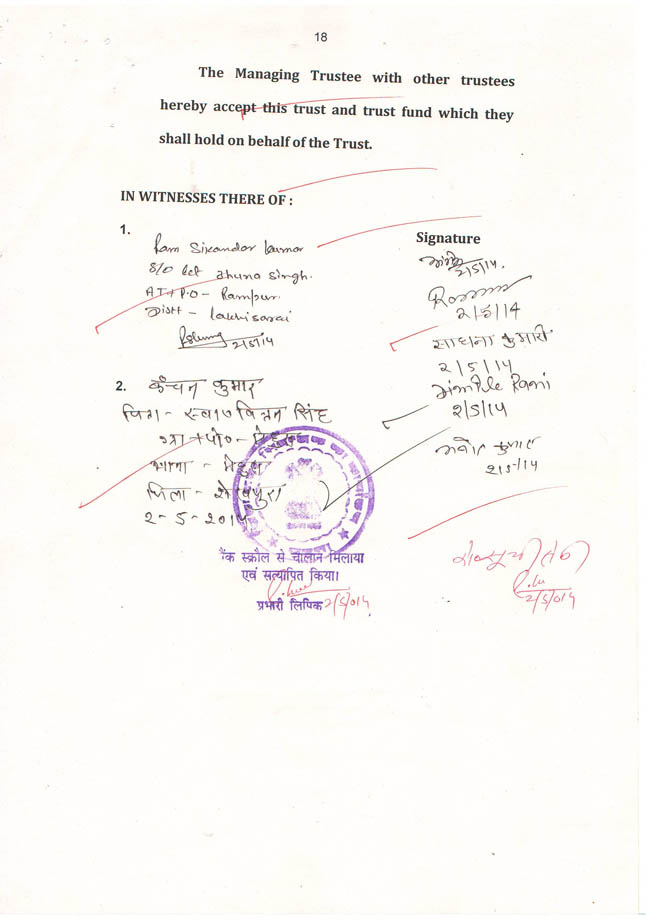 18
The Managing Trustee with other trustees
hereby accept this trust and trust fund which they
shall hold on behalf of the Trust.
IN WITNESSES THERE OF :
1.
Ram Sikandar Kumar
S/O Singh.
AT+P.O- Rampur.
Distt- Lakhisarai
2/5/14
2. कंचन कुमार
पिता- सिंह
ग्रा+पो०-
थाना -
जिला - शेखपुरा
2-5-2014
Signature
2/5/14.
2/5/14
साधना कुमारी
2/5/14
Dimple Rani
2/5/14
कुमार
2/5/14
बैंक स्क्रौल से चालान मिलाया
एवं सत्यापित किया।
प्रभारी लिपिक 2/5/014
2/5/014